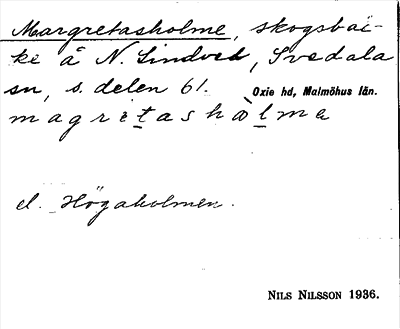 Margretasholme, skogsbac-
ke å N. Lindved, Svedala
sn, s. delen 61. Oxie hd, Malmöhus län.
magretashòlme
el. Högaholmen.
NILS NILSSON 1936.